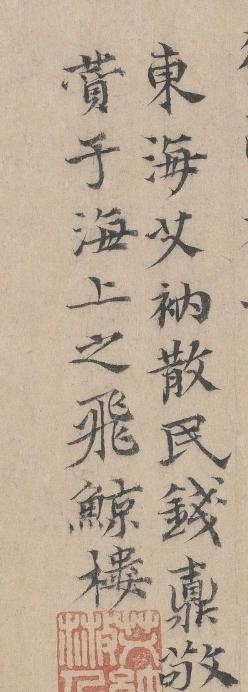 東海艾衲散民錢鼒敬
賛于海上之飛鯨樓